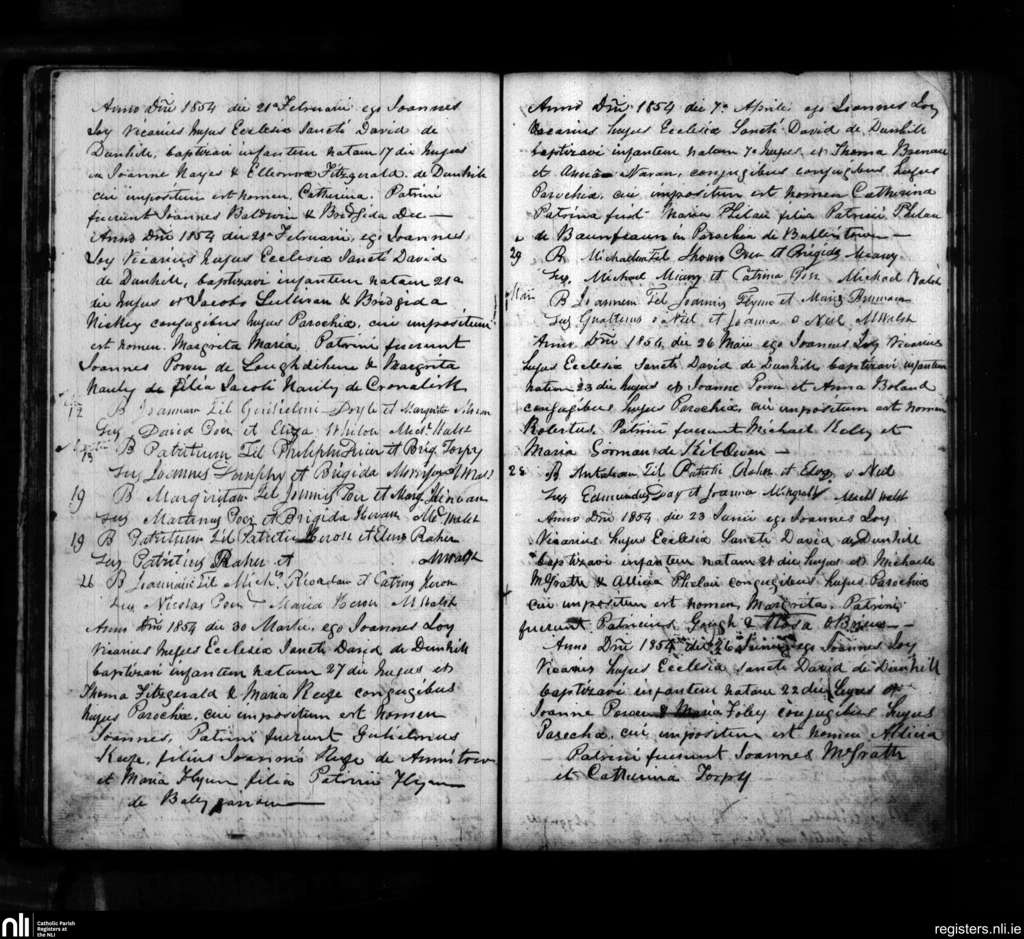 Anno Dñi 1854 die 21ª Februarii ego Joannes
Loy Vicarius hujus Ecclesia Sancti David de
Dunhill, baptizavi infantem natam 17 die hujus
ex Joanne Hayes & Elleonora Fitzgerald de Dunhill
cui impositum est nomen, Catherina. Patrini
fuerunt Joannes Baldwin & Bridgida Dee —
Anno Dñi 1854 die 21ª Februarii, ego Joannes
Loy Vicarius hujus Ecclesia Sancti David
de Dunhill, baptizavi infantem natam 21ª
die hujus ex Jacobo Sullivan & Bridgida
Hickey conjugibus hujus Parochia, cui impositum
est nomen. Margreta Maria, Patrini fuerunt
Joannes Power de & Margrita
Hauly de filia Jacobi Hauly de
12 B Joannem fil Gulielmi Doyle et Margarita
Susp David Poer et Eliza Whelon Micl Walsh
B Patritium Fil Philiphi et Brig Torpy
Susp Joannes Dunphy et Brigida
19 B Margaritam fil Joannis Poer et Marg Kirwan
Susp Martinus Poer et Brigida Kirwan Ml Walsh
19 B Patritium fil Patritii et Elenor Raher
Susp Patritius Raher et M Walsh
26 B Joannem fil Michl Riordan et Catrina Heron
Susp Nicolas Poer Maria Heron M Walsh
Anno Dñi 1854 die 30 Martii, ego Joannes Loy
Vicarius hujus Ecclesia Sancti David de Dunhill
baptizavi infantem natum 27 die hujus ex
Thoma Fitzgerald & Maria Keefe conjugibus
hujus Parochia, cui impositum est nomen
Joannes, Patrini fuerunt Gulielmus
Keefe, filius Joannis Keefe de Annstown
et Maria Flynn filia Patricii Flynn
de
Anno Dñi 1854 die 7ª Aprilis ego Joannes Loy
Vicarius hujus Ecclesia Sancti David de Dunhill
baptizavi infantem natam 7ª hujus, ex Thoma
et conjugibus conjugibus hujus
Parochia, cui impositum est nomen Catherina
Patrina fuit Maria Phelan filia Patricii Phelan
de in Parochia de
29 B Michaelem fil et Brigida Meany
Susp Michael Meany et Catrina Michael Walsh
Maii B Joannem Fil Joannis Flynn et Maria
Susp Gualterus o Niel et Joanna o Niel M Walsh
Anno Dñi 1854, die 26 Maii ego Joannes Loy Vicarius
hujus Ecclesia Sancti David de Dunhill baptizavi infantem
natum 23 die hujus ex Joanne Power et Anna Boland
conjugibus hujus Parochia, cui impositum est nomen
Robertus Patrini fuerunt Michael Kelly et
Maria Gorman de
28 B Fil Patritii Raher et o Niel
Susp Edmundus Day et Joanna Michl Walsh
Anno Dñi 1854 die 23 Junii ego Joannes Loy
Vicarius hujus Ecclesia Sancti David de Dunhill
baptizavi infantem natam 21 die hujus ex Michaele
McGrath & Allicia Phelan conjugibus hujus Parochia
cui impositum est nomen, Margrita. Patrini
fuerunt Patricius Gough & O Brien —
Anno Dñi 1854 die 26 Junii ego Joannes Loy
Vicarius hujus Ecclesia Sancti David de Dunhill
baptizavi infantem natam 22 die hujus ex
Joanne Power & Maria Foley conjugibus hujus
Parochia, cui impositum est nomen Allicia
Patrini fuerunt Joannes McGrath
et Catherina Torpy
nli
Catholic Parish
Registers at
the NLI
registers.nli.ie